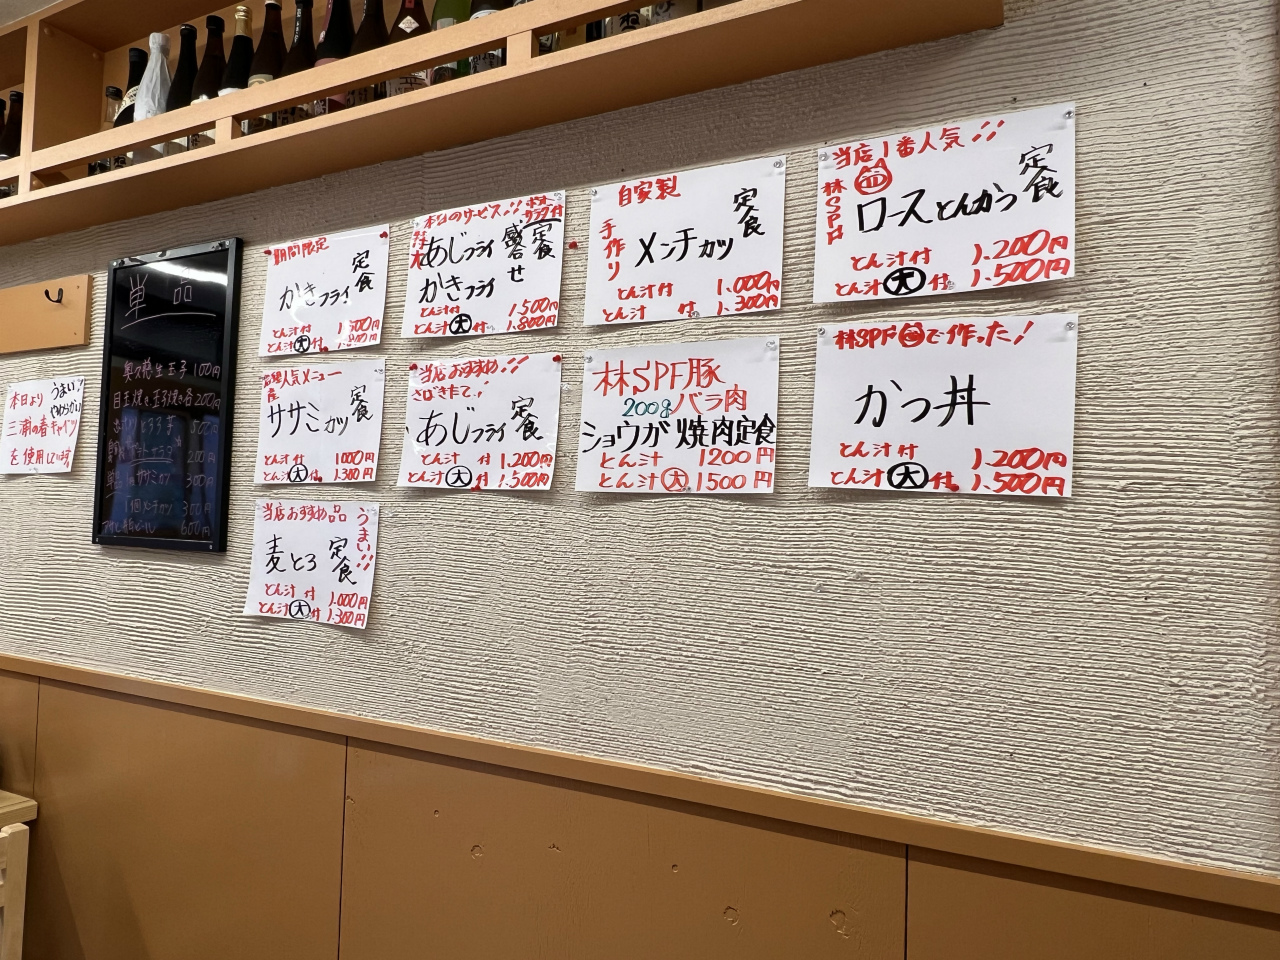 本日より
うまい!
やわらかい
三浦の春キャベツ
を使用しています。
単品
奥久慈生玉子 100円
目玉焼き、玉子焼き各200円
200円
ササミカツ 300円
メンチカツ 300円
600円
期間限定
かきフライ
定食
とん汁付
とん汁大付
本日のサービス!!
ポテトサラダ付
特大
あじフライ
かきフライ
盛合せ
定食
とん汁付 1.500円
とん汁大付 1.800円
自家製
手作り
メンチカツ
定食
とん汁付 1.000円
とん汁 付 1.300円
当店1番人気!!
林SPF
ロースとんかつ
定食
とん汁付 1.200円
とん汁大付 1.500円
人気メニュー
ササミカツ
定食
とん汁付 1000円
とん汁大付 1.300円
当店おすすめ!!
さばきたて!
あじフライ
定食
とん汁付 1.200円
とん汁大付 1.500円
林SPF豚
200gバラ肉
ショウガ焼肉定食
とん汁 1200円
とん汁大 1500円
林SPFで作った!
かつ丼
とん汁付 1.200円
とん汁大付 1.500円
当店おすすめ品
うまい!!
麦とろ
定食
とん汁付 1.000円
とん汁大付 1.300円